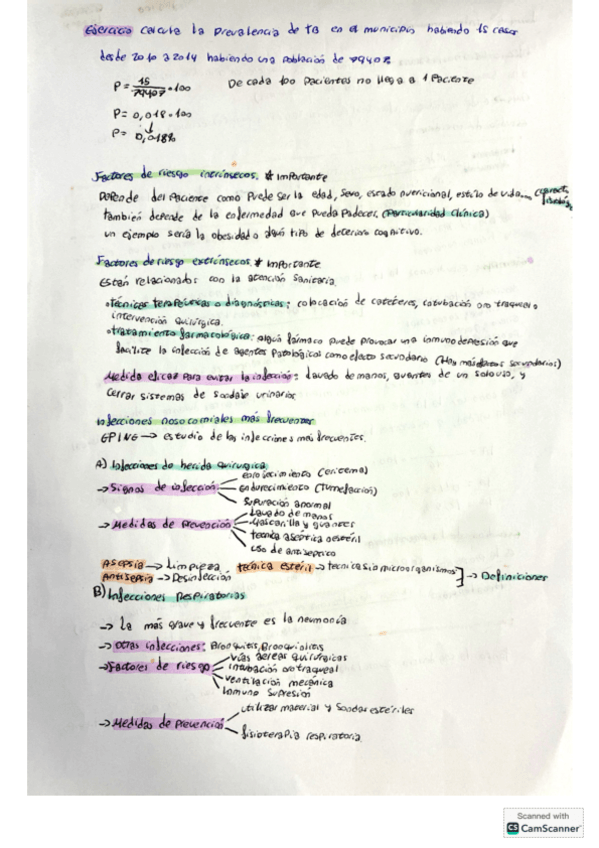 Ejercicio calcula la prevalencia de TB en el municipio habiendo 15 casos
desde 2010 a 2014 habiendo una población de 79407
P = 15/79407 · 100 De cada 100 Pacientes no llega a 1 Paciente
P = 0,018 · 100
P = 0,018%
Factores de riesgo intrínsecos. * Importante
Depende del Paciente como Puede ser la edad, Sexo, estado nutricional, estilo de vida...
también depende de la enfermedad que Pueda Padecer. (Particularidad Clínica)
un ejemplo sería la obesidad o algún tipo de deterioro cognitivo.
Factores de riesgo extrínsecos * Importante
Están relacionados con la atención Sanitaria.
•Técnicas terapéuticas o diagnósticas: colocación de catéteres, intubación oro traqueal o
intervención quirúrgica.
•tratamiento farmacológico: algún fármaco Puede Provocar una inmunodepresión que
facilite la infección de agentes Patológicos como efecto secundario (Hay más efectos secundarios)
Medida eficaz Para evitar la infección: lavado de manos, guantes de un solo uso, y
Cerrar sistemas de Sondaje urinarios
Infecciones nosocomiales más frecuentes
EPINE → estudio de las infecciones más frecuentes.
A) Infecciones de herida quirúrgica
→ Signos de infección enrojecimiento (eritema)
endurecimiento (Tumefacción)
Supuración anormal
→ Medidas de Prevención Lavado de manos
Mascarilla y guantes
técnica aséptica o estéril
uso de antiséptico
Asepsia → Limpieza técnica estéril → técnica sin microorganismos ] → Definiciones
Antisepsia → Desinfección
B) Infecciones respiratorias
→ La más grave y frecuente es la neumonía
→ Otras infecciones: Bronquitis, Bronquiolitis
→ Factores de riesgo vías aéreas quirúrgicas
intubación orotraqueal
ventilación mecánica
Inmuno Supresión
→ Medidas de Prevención utilizar material y Sondas estériles
fisioterapia respiratoria.
Scanned with
CS CamScanner